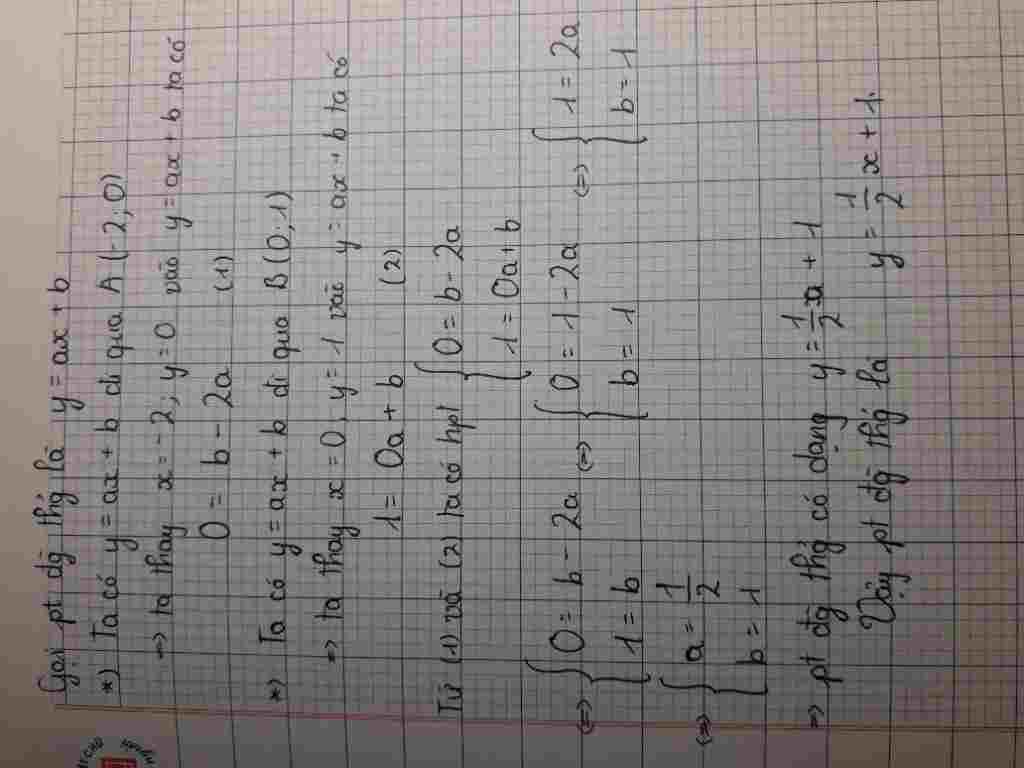 Gọi pt đg thg là y = ax + b
*) Ta có y = ax + b đi qua A (-2; 0)
=> ta thay x = -2; y = 0 vào y = ax + b ta có
0 = b - 2a (1)
*) Ta có y = ax + b đi qua B (0; 1)
=> ta thay x = 0, y = 1 vào y = ax + b ta có
1 = 0a + b (2)
Từ (1) và (2) ta có hpt { 0 = b - 2a
1 = 0a + b
<=> { 0 = b - 2a <=> { 0 = 1 - 2a <=> { 1 = 2a
1 = b b = 1 b = 1
<=> { a = 1/2
b = 1
=> pt đg thg có dạng y = 1/2 a + 1
Vậy pt đg thg là y = 1/2 x + 1.